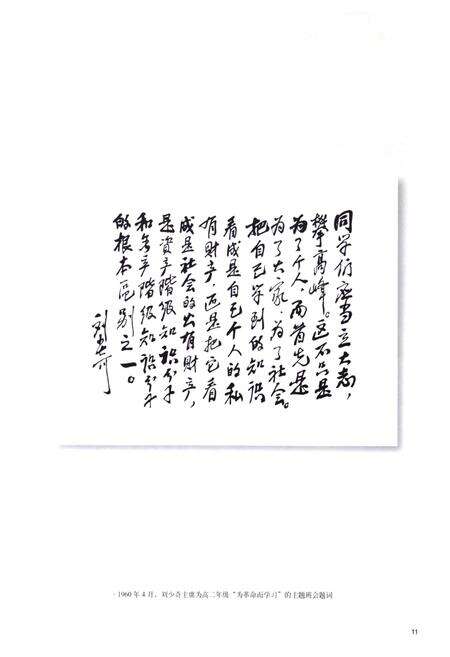 同学们应当立大志，
攀高峰。这不只是
为了个人，而首先是
为了大家，为了社会。
把自己学到的知识
看成是自己个人的私
有财产，还是把它看
成是社会的公有财产，
是资产階级知识分子
和无产階级知识分子
的根本区别之一。
刘少奇
·1960 年 4 月，刘少奇主席为高二年级“为革命而学习”的主题班会题词
11